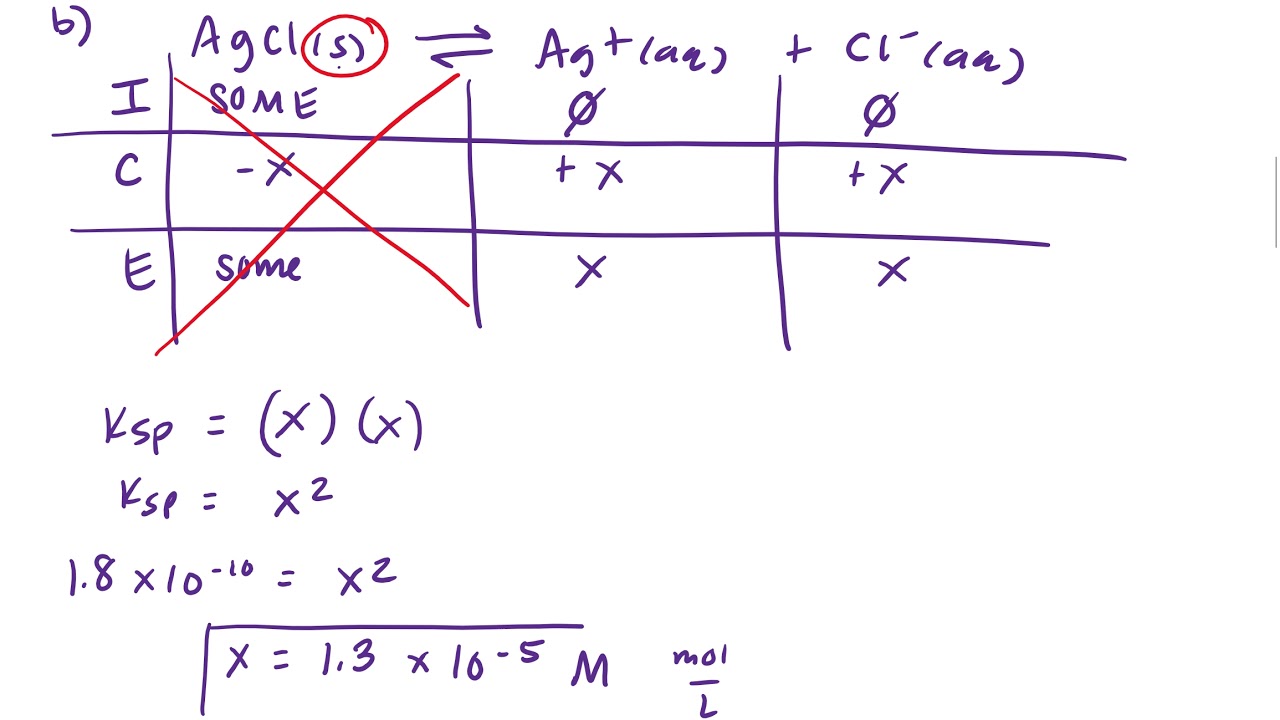 b)
AgCl(s) ⇌ Ag⁺(aq) + Cl⁻(aq)
I SOME ∅ ∅
C -x +x +x
E some x x
Ksp = (x)(x)
Ksp = x²
1.8 x10⁻¹⁰ = x²
x = 1.3 x 10⁻⁵ M mol/L